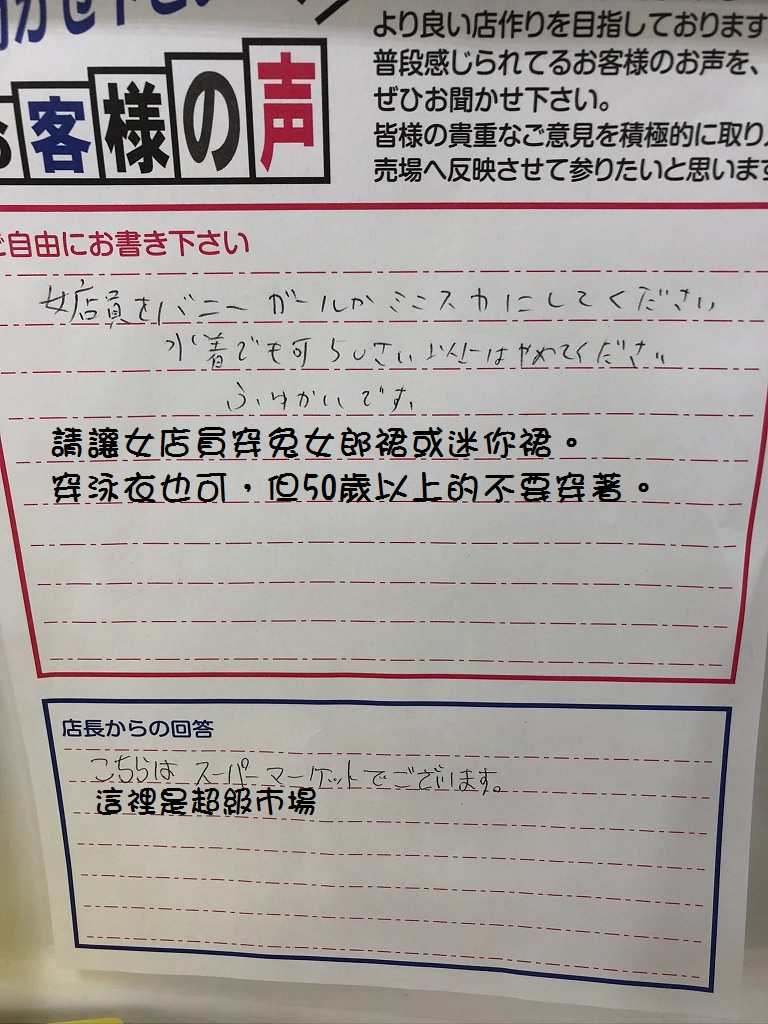 より良い店作りを目指しております
普段感じられてるお客様のお声を、
ぜひお聞かせ下さい。
皆様の貴重なご意見を積極的に取り
売場へ反映させて参りたいと思います
お客様の声
ご自由にお書き下さい
女店員をバニーガールかミニスカにしてください
水着でも可 50さい以上はやめてください
ふゆかいです。
請讓女店員穿兔女郎裙或迷你裙。
穿泳衣也可，但50歲以上的不要穿著。
店長からの回答
こちらは スーパーマーケットでございます。
這裡是超級市場